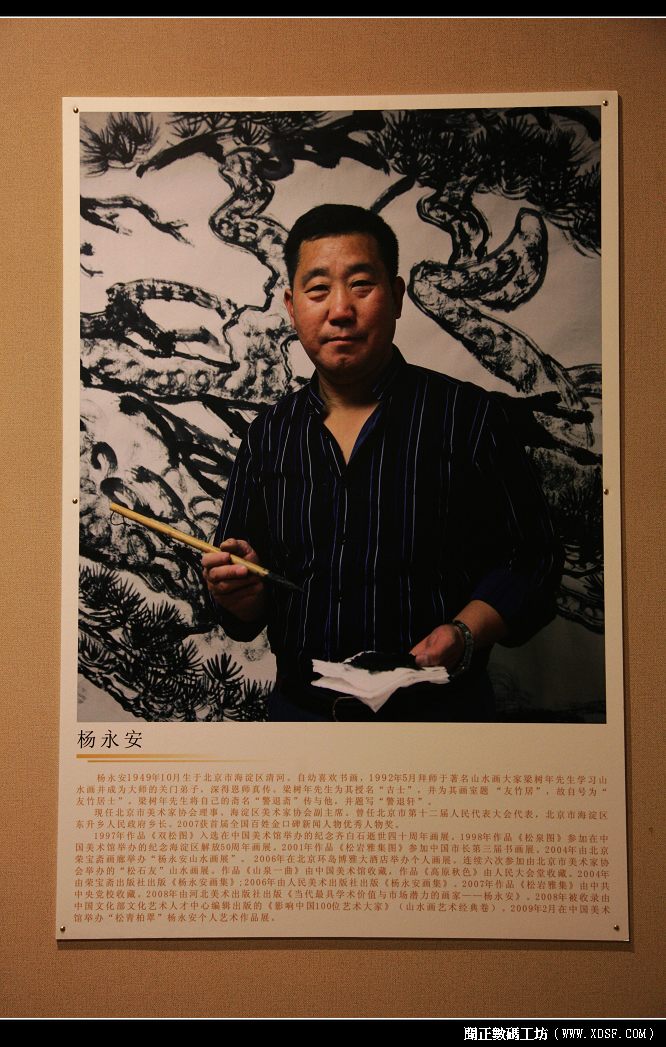 杨永安
杨永安1949年10月生于北京市海淀区清河。自幼喜欢书画，1992年5月拜师于著名山水画大家梁树年先生学习山
水画并成为大师的关门弟子，深得恩师真传。梁树年先生为其授名“古士”，并为其画室题 “友竹居”，故自号为“
友竹居士”。梁树年先生将自己的斋名“警退斋”传与他，并题写“警退轩”。
现任北京市美术家协会理事、海淀区美术家协会副主席，曾任北京市第十二届人民代表大会代表，北京市海淀区
东升乡人民政府乡长。2007获首届全国百姓金口碑新闻人物优秀人物奖。
1997年作品《双松图》入选在中国美术馆举办的纪念齐白石逝世四十周年画展。1998年作品《松泉图》参加在中
国美术馆举办的纪念海淀区解放50周年画展。2001年作品《松岩雅集图》参加中国市长第三届书画展。2004年由北京
荣宝斋画廊举办“杨永安山水画展”。 2006年在北京环岛博雅大酒店举办个人画展。连续六次参加由北京市美术家协
会举办的“松石友”山水画展。作品《山泉一曲》由中国美术馆收藏。作品《高原秋色》由人民大会堂收藏。2004年
由荣宝斋出版社出版《杨永安画集》;2006年由人民美术出版社出版《杨永安画集》。2007年作品《松岩雅集》由中共
中央党校收藏。2008年由河北美术出版社出版《当代最具学术价值与市场潜力的画家——杨永安》。2008年被收录由
中国文化部文化艺术人才中心编辑出版的《影响中国100位艺术大家》（山水画艺术经典卷）。2009年2月在中国美术
馆举办“松青柏翠”杨永安个人艺术作品展。
聞正數碼工坊（WWW.XDSF.COM）